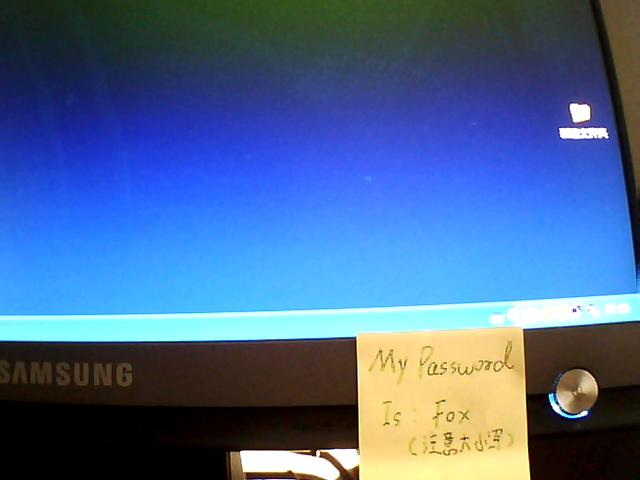 SAMSUNG
My Password
Is: Fox
(注意大小写)